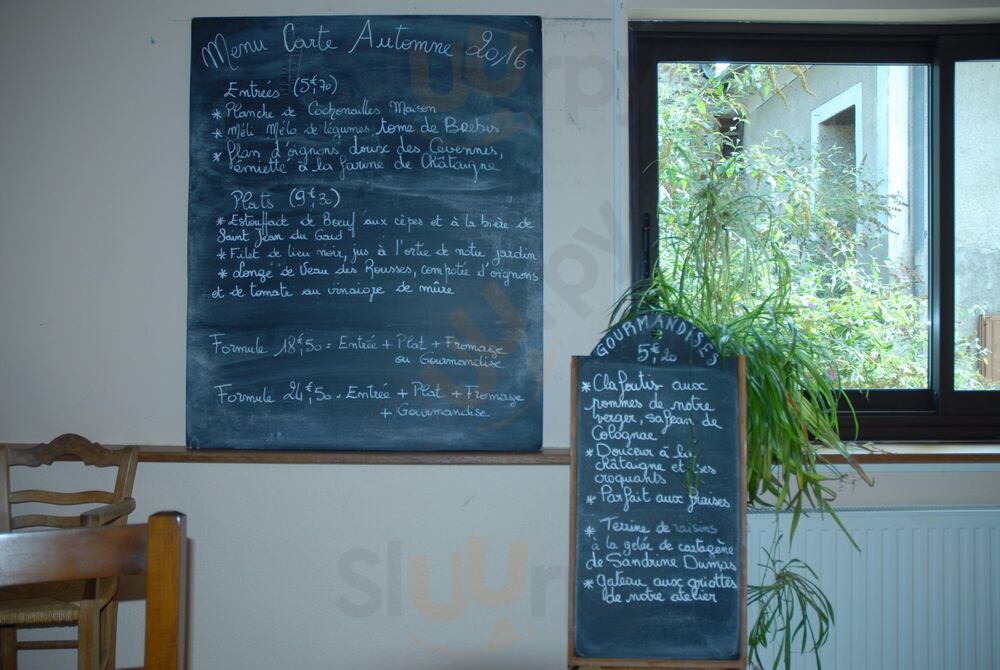 Menu Carte Automne 2016
Entrées (5€,70)
* Planche de Cochonailles Maison
* Méli Mélo de légumes, tome de Brebis
* Flan d'oignons doux des Cévennes,
émietté à la farine de Châtaigne
Plats (9€,30)
* Estouffade de Bœuf aux cèpes et à la bière de
Saint Jean du Gard
* Filet de lieu noir, jus à l'ortie de notre jardin
* Longe de Veau des Rousses, compotée d'oignons
et de tomate au vinaigre de mûre
Formule 18€,50 = Entrée + Plat + Fromage
ou Gourmandise
Formule 24€,50 = Entrée + Plat + Fromage
+ Gourmandise
GOURMANDISES
5€,20
* Clafoutis aux
pommes de notre
verger, safran de
Colognac
* Douceur à la
châtaigne et ses
croquants
* Parfait aux fraises
* Terrine de raisins
à la gelée de cartagène
de Sandrine Dumas
* gateau aux griottes
de notre atelier
Sluurpy